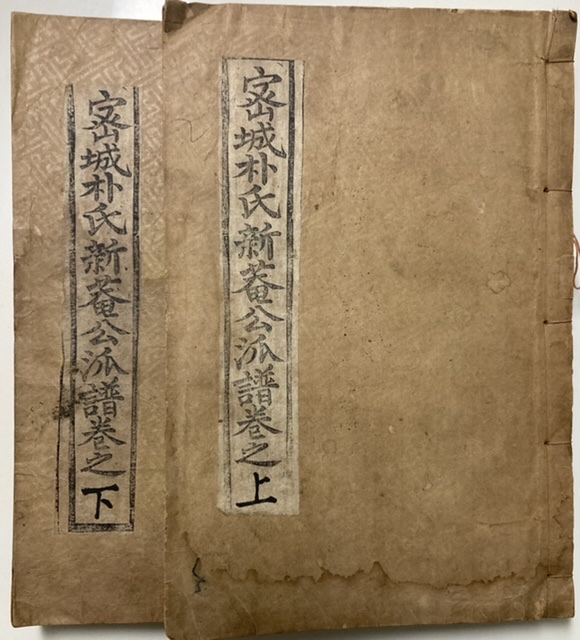 密城朴氏新菴公派譜卷之上
密城朴氏新菴公派譜卷之下